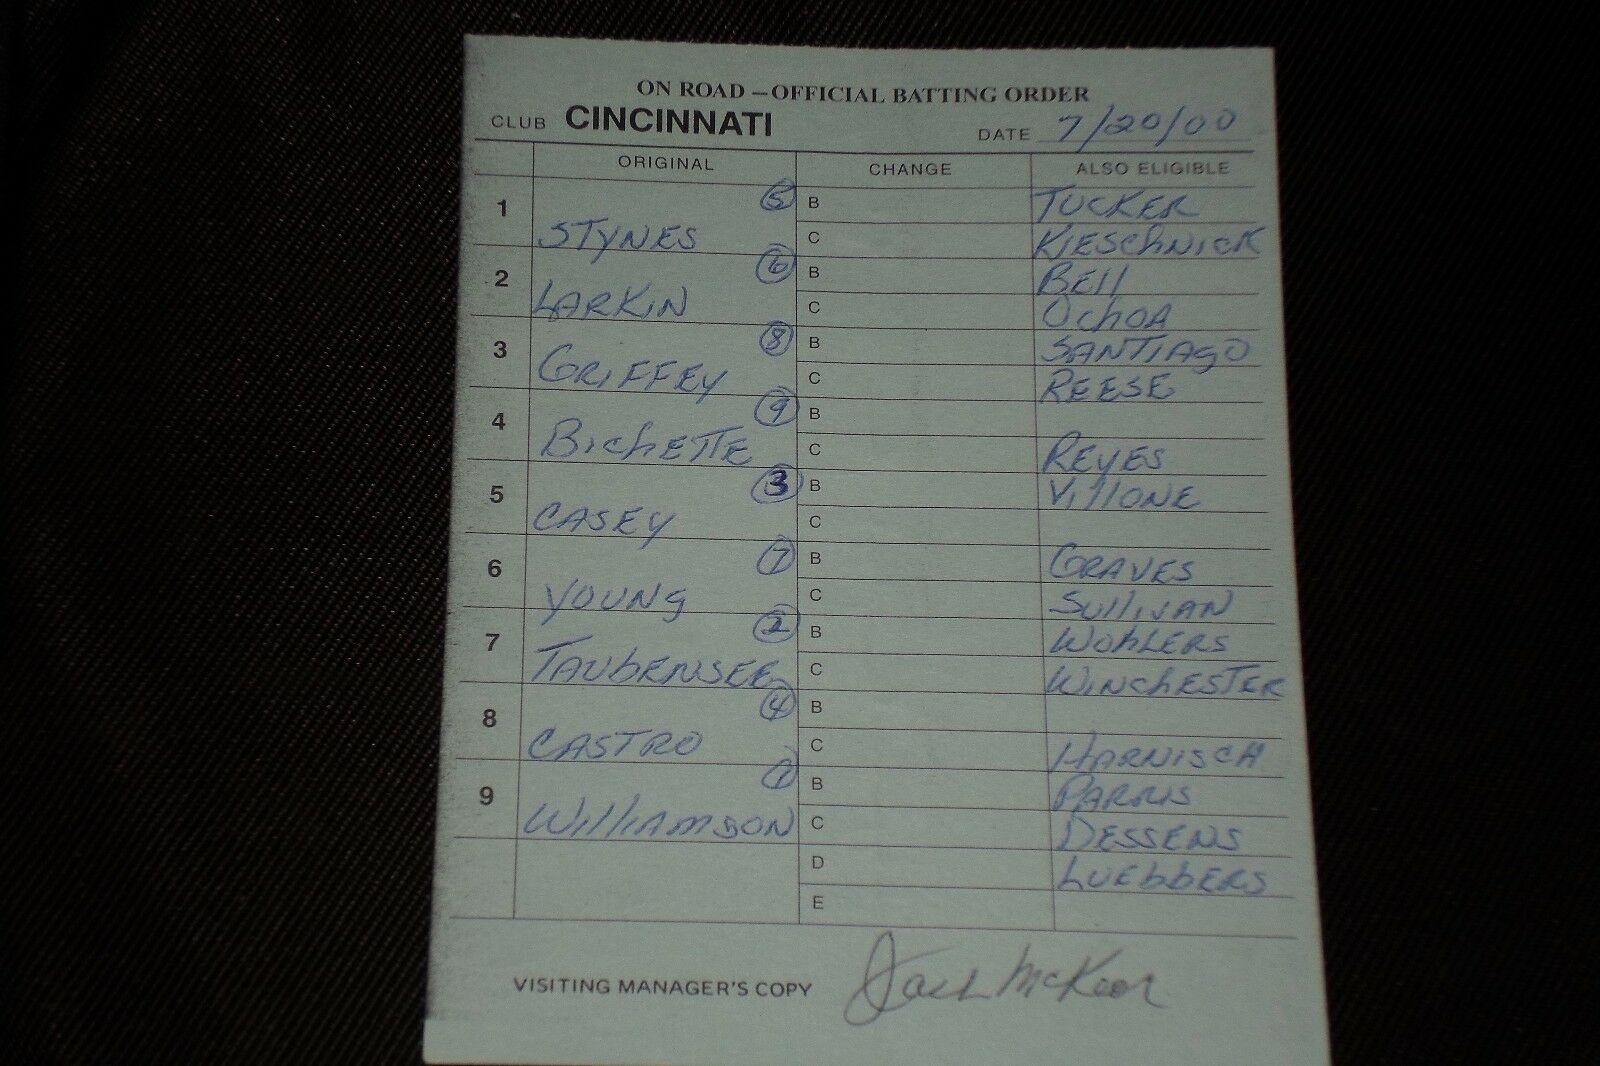 ON ROAD – OFFICIAL BATTING ORDER
CLUB CINCINNATI DATE 7/20/00
ORIGINAL CHANGE ALSO ELIGIBLE
1 STYNES 5 B TUCKER
C KIESCHNICK
2 LARKIN 6 B BEll
C OchOA
3 GRIFFEY 8 B SANTIAGO
C REESE
4 BichETTE 9 B
C REYES
5 CASEY 3 B VillONE
C
6 YOUNG 7 B GRAVES
C SulliVAN
7 TAUbENSEE 2 B WOhLERS
C WINChESTER
8 CASTRO 4 B
C HARNISCH
9 WilliAMSON 1 B PARRIS
C DESSENS
D LUEbbERS
E
VISITING MANAGER'S COPY Jack McKeon